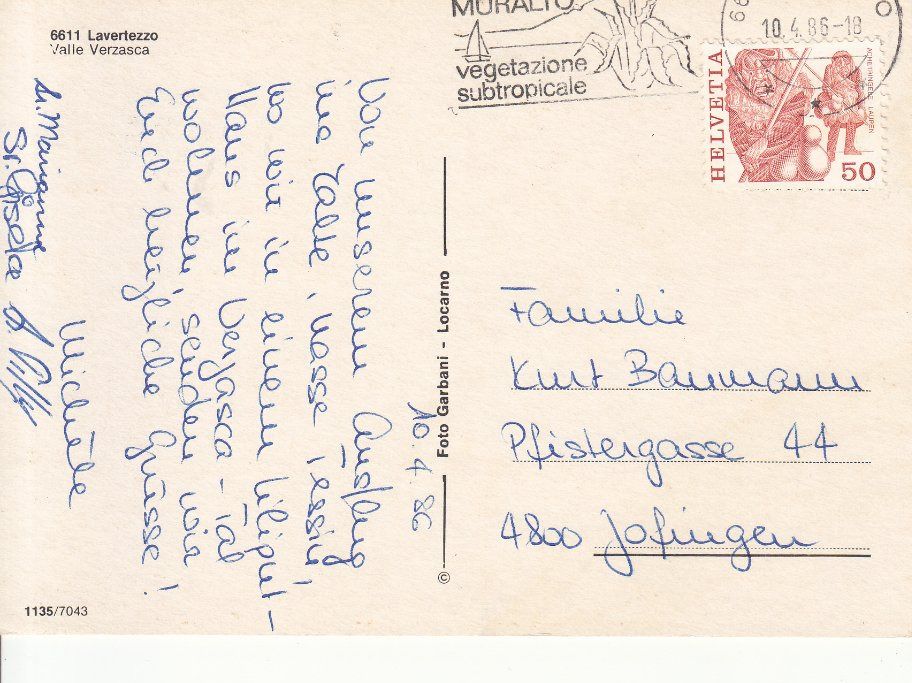 6611 Lavertezzo
Valle Verzasca
MURALTO
vegetazione
subtropicale
10.4.86-18
HELVETIA
ACHETRINGELE LAUPEN
50
10.4.86
Von unserem Ausflug
ins kalte, nasse Tessin,
wo wir in einem Liliput-
Haus im Verzasca-Tal
wohnen, senden wir
Euch herzliche Grüsse!
Michèle
Sr. Marianne
Sr. Gisela
Foto Garbani - Locarno
©
Familie
Kurt Baumann
Pfistergasse 44
4800 Zofingen
1135/7043